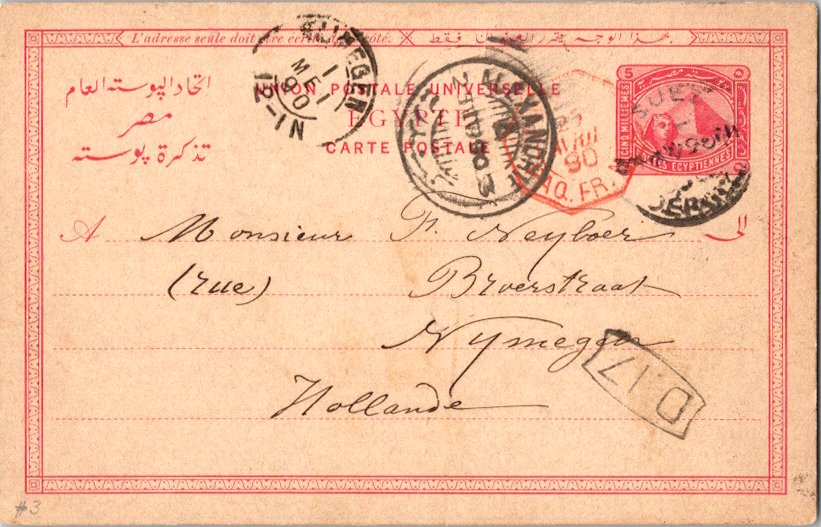 L'adresse seule doit être écrite de ce côté.
بهذا الوجه يتحرر العنوان فقط
اتحاد البوسته العام
مصر
تذكرة بوسته
UNION POSTALE UNIVERSELLE
EGYPTE
CARTE POSTALE
NIJMEGEN
1 MEI 90
12-1N
ALEXANDRIE
90
PAQ. FR.
5
CINQ MILLIEMES
POSTES EGYPTIENNES
SUEZ
A Monsieur F. Neyboer
الى
(rue) Broerstraat
Nymegen
Hollande
D.17
#3